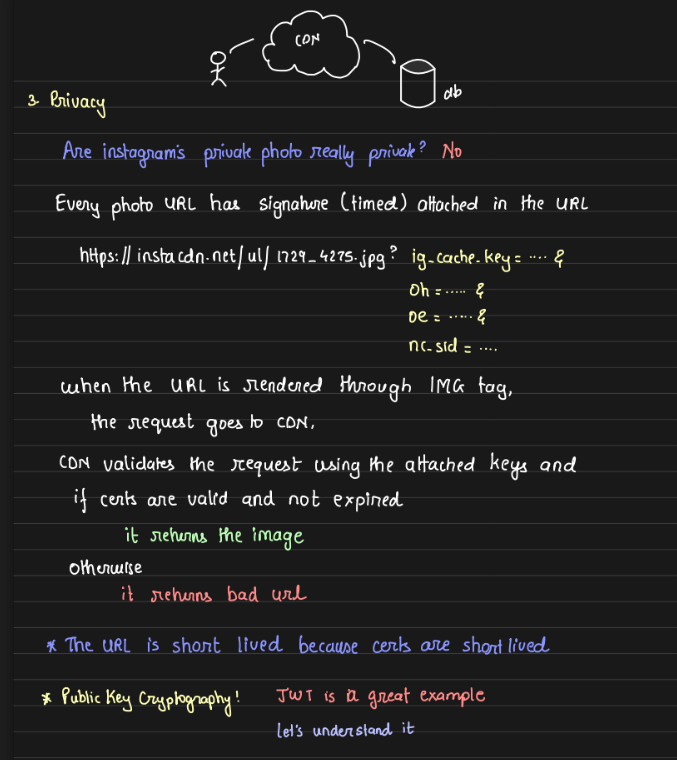 CDN
db
3. Privacy
Are instagram's private photo really private? No
Every photo URL has signature (timed) attached in the URL
https://instacdn.net/ul/1729_4275.jpg? ig_cache_key = .... &
oh = ..... &
oe = ..... &
nc_sid = ....
when the URL is rendered through IMG tag,
the request goes to CDN.
CDN validates the request using the attached keys and
if certs are valid and not expired
it returns the image
otherwise
it returns bad url
* The URL is short lived because certs are short lived
* Public Key Cryptography! JWT is a great example
let's understand it